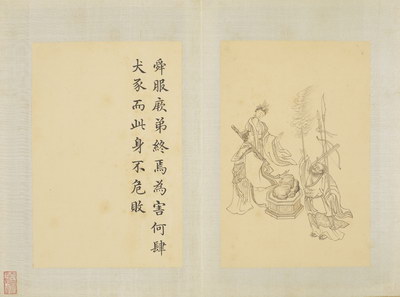 舜服厥弟終焉為害何肆
犬豕而此身不危敗